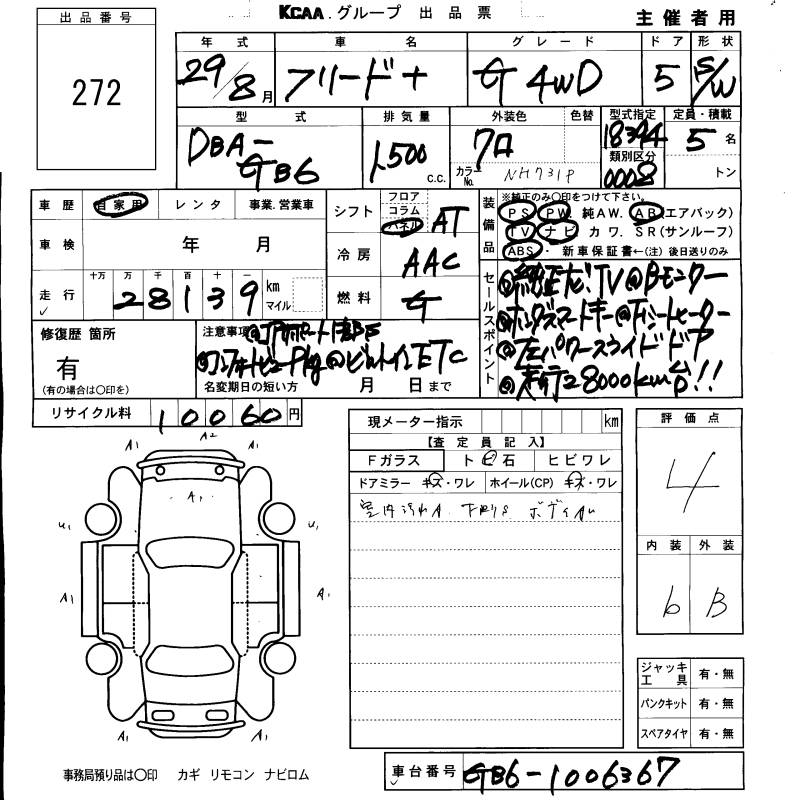 KCAA.グループ 出品票
主催者用
出品番号
272
年式 車名 グレード ドア 形状
29/8月 フリード+ G 4WD 5 S/W
型式 排気量 外装色 色替 型式指定 定員・積載
DBA-GB6 1500 c.c. 7ロ 18394 5名
カラーNo. NH731P 類別区分 0008 トン
車歴 自家用 レンタ 事業.営業車
車検 年 月
走行 十万 万 千 百 十 一 km マイル
28139
シフト フロア コラム パネル AT
冷房 AAC
燃料 G
装備品
※純正のみ〇印をつけて下さい。
PS PW. 純AW. AB(エアバック)
TV ナビ カワ. SR(サンルーフ)
ABS・ 新車保証書←(注)後日送りのみ
セールスポイント
◎純正ナビTV◎Bモニター
◎ホンダスマートキー◎Fシートヒーター
◎左パワースライドドア
◎走行28000km台!!
修復歴 箇所
有
(有の場合は〇印を)
注意事項
◎コンフォートビューPkg◎ビルトインETC
名変期日の短い方 月 日まで
リサイクル料 10060円
現メーター指示 km
【査定員記入】
Fガラス ト ビ 石 ヒビワレ
ドアミラー キズ・ワレ ホイール(CP) キズ・ワレ
室内汚れA. 下廻りS
評価点
4
内装 外装
b B
A1 A2 A1
A1
U1 U1
A1 A1
A1 A1
ジャッキ工具 有・無
パンクキット 有・無
スペアタイヤ 有・無
事務局預り品は〇印 カギ リモコン ナビロム
車台番号 GB6-1006367